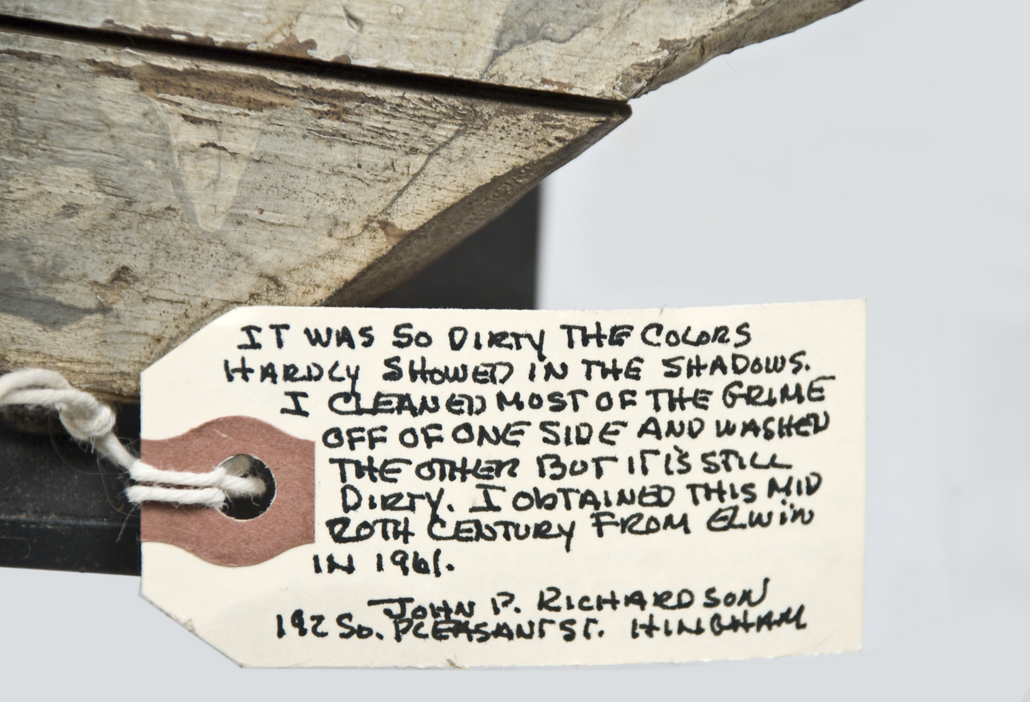 IT WAS SO DIRTY THE COLORS
HARDLY SHOWED IN THE SHADOWS.
I CLEANED MOST OF THE GRIME
OFF OF ONE SIDE AND WASHED
THE OTHER BUT IT IS STILL
DIRTY. I OBTAINED THIS MID
20TH CENTURY FROM ELWIN
IN 1961.
JOHN P. RICHARDSON
192 SO. PLEASANT ST. HINGHAM